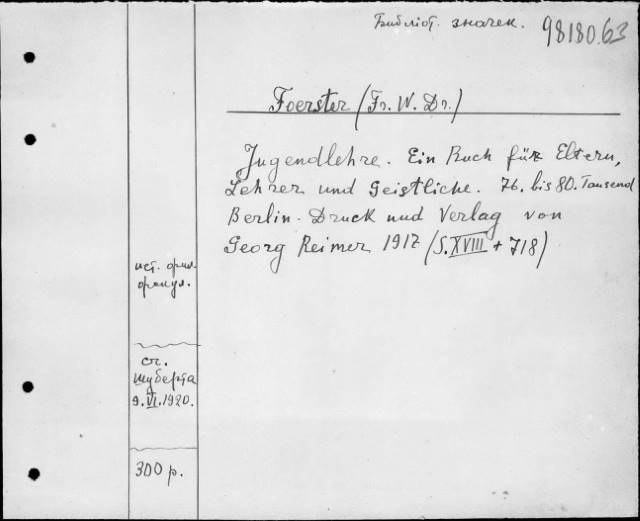 Библіот. значек. 98180.63
Foerster (Fr. W. Dr.)
Jugendlehre. Ein Buch für Eltern,
Lehrer und Geistliche. 76. bis 80. Tausend
Berlin. Druck und Verlag von
Georg Reimer 1917 (S. XVIII + 718)
ист. фил.
факул.
ст.
Шуберта
9.VI.1920.
300 р.